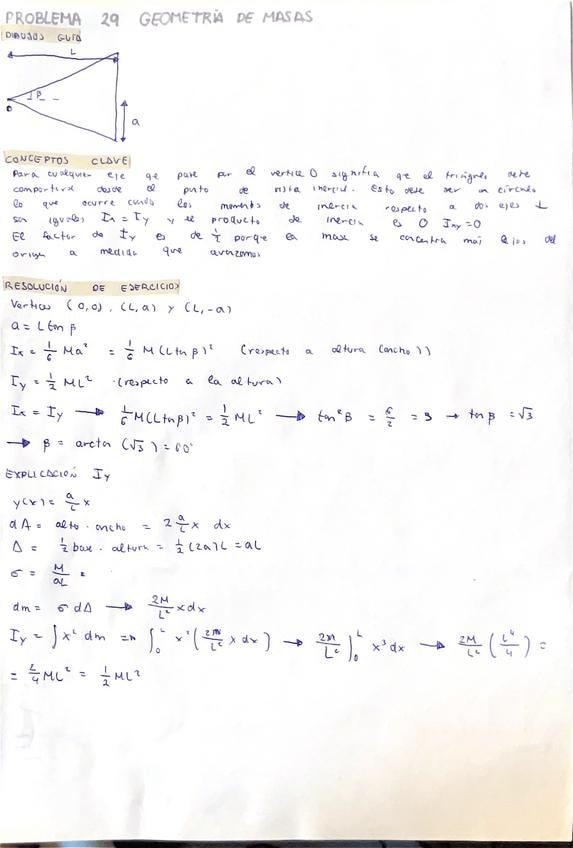 PROBLEMA 29 GEOMETRÍA DE MASAS
DIBUJOS GUÍA
L
β
O
a
CONCEPTOS CLAVE
Para cualquier eje qe pase por el vertice O significa qe el triángulo debe
comportarse desde el punto de vista inercial. Esto debe ser un círculo
lo que ocurre cuando los momentos de inercia respecto a dos ejes ⊥
son iguales Ix = Iy y el producto de inercia es 0 Ixy = 0
El factor de Iy es de 1/2 porque la masa se concentra más lejos del
origen a medida que avanzamos
RESOLUCIÓN DE EJERCICIOS
Vertices (0,0), (L,a) y (L,-a)
a = L tan β
Ix = 1/6 Ma² = 1/6 M(Ltan β)² (respecto a altura (ancho))
Iy = 1/2 ML² (respecto a la altura)
Ix = Iy → 1/6 M(Ltanβ)² = 1/2 ML² → tan²β = 6/2 = 3 → tan β = √3
→ β = arctan (√3) = 60°
EXPLICACIÓN Iy
y(x) = a/L x
dA = alto · ancho = 2 a/L x dx
A = 1/2 base · altura = 1/2 (2a)L = aL
σ = M/aL =
dm = σ dA → 2M/L² x dx
Iy = ∫ x² dm = ∫₀ᴸ x² (2M/L² x dx) → 2M/L² ∫₀ᴸ x³ dx → 2M/L² (L⁴/4) =
= 2/4 ML² = 1/2 ML²